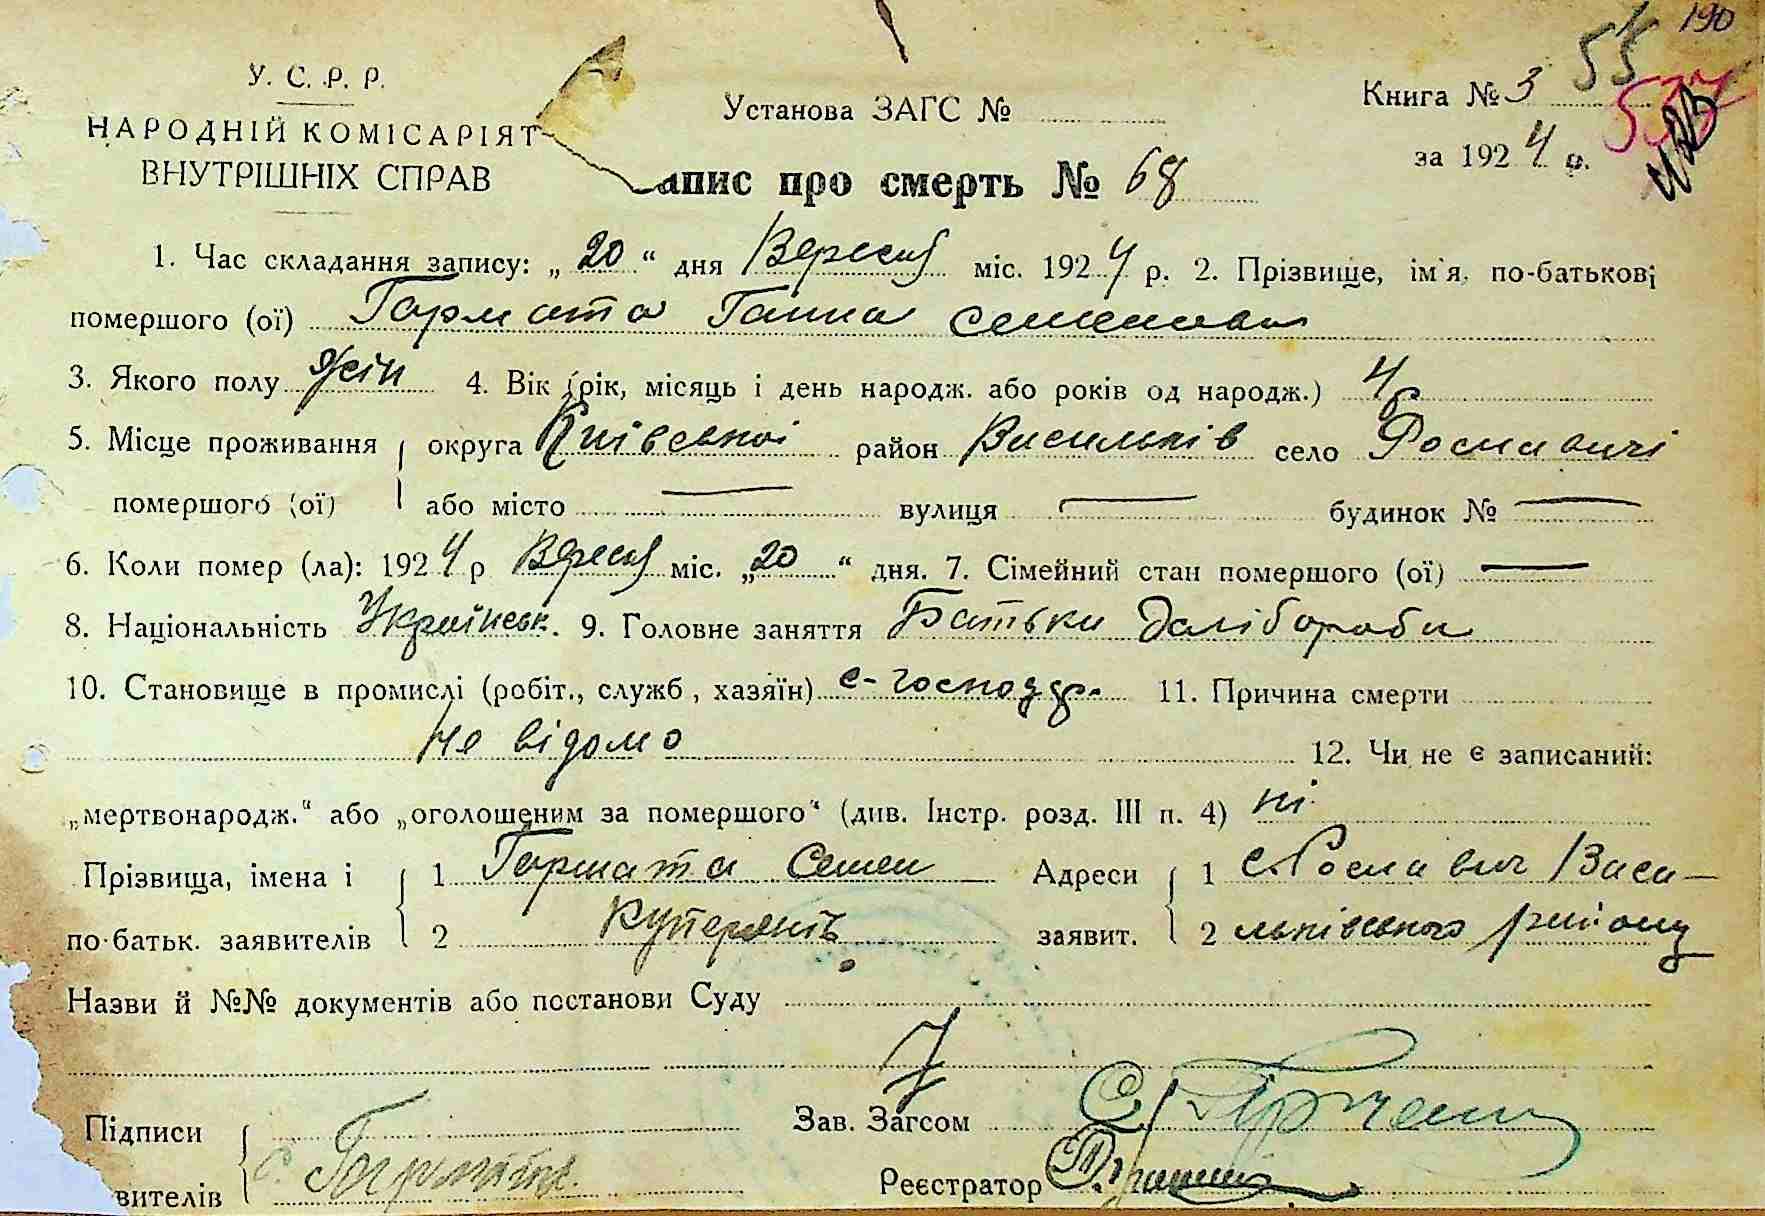 190
55
У. С. Р. Р.
НАРОДНІЙ КОМІСАРІЯТ
ВНУТРІШНІХ СПРАВ
Установа ЗАГС №
Книга № 3
за 1924 р.
апис про смерть № 68
1. Час складання запису: „20“ дня Вересня міс. 1924 р. 2. Прізвище, ім'я, по-батькові
помершого (ої) Гармата Ганна Семенова
3. Якого полу жін 4. Вік (рік, місяць і день народж. або років од народж.) 4 р
5. Місце проживання округа Київської район Васильків село Рославичі
помершого (ої) або місто — вулиця — будинок № —
6. Коли помер (ла): 1924 р Вересня міс. „20“ дня. 7. Сімейний стан помершого (ої) —
8. Національність Українськ. 9. Головне заняття Батьки хлібороби
10. Становище в промислі (робіт., служб, хазяїн) с-господар. 11. Причина смерти
не відомо 12. Чи не є записаний:
„мертвонародж.“ або „оголошеним за помершого“ (див. Інстр. розд. III п. 4) ні
Прізвища, імена і 1 Гармата Семен Адреси 1 с. Рославич Васи-
по-батьк. заявителів 2 заявит. 2 льківського району
Назви й №№ документів або постанови Суду
Зав. Загсом
Підписи
С. Гармата
вителів Реєстратор